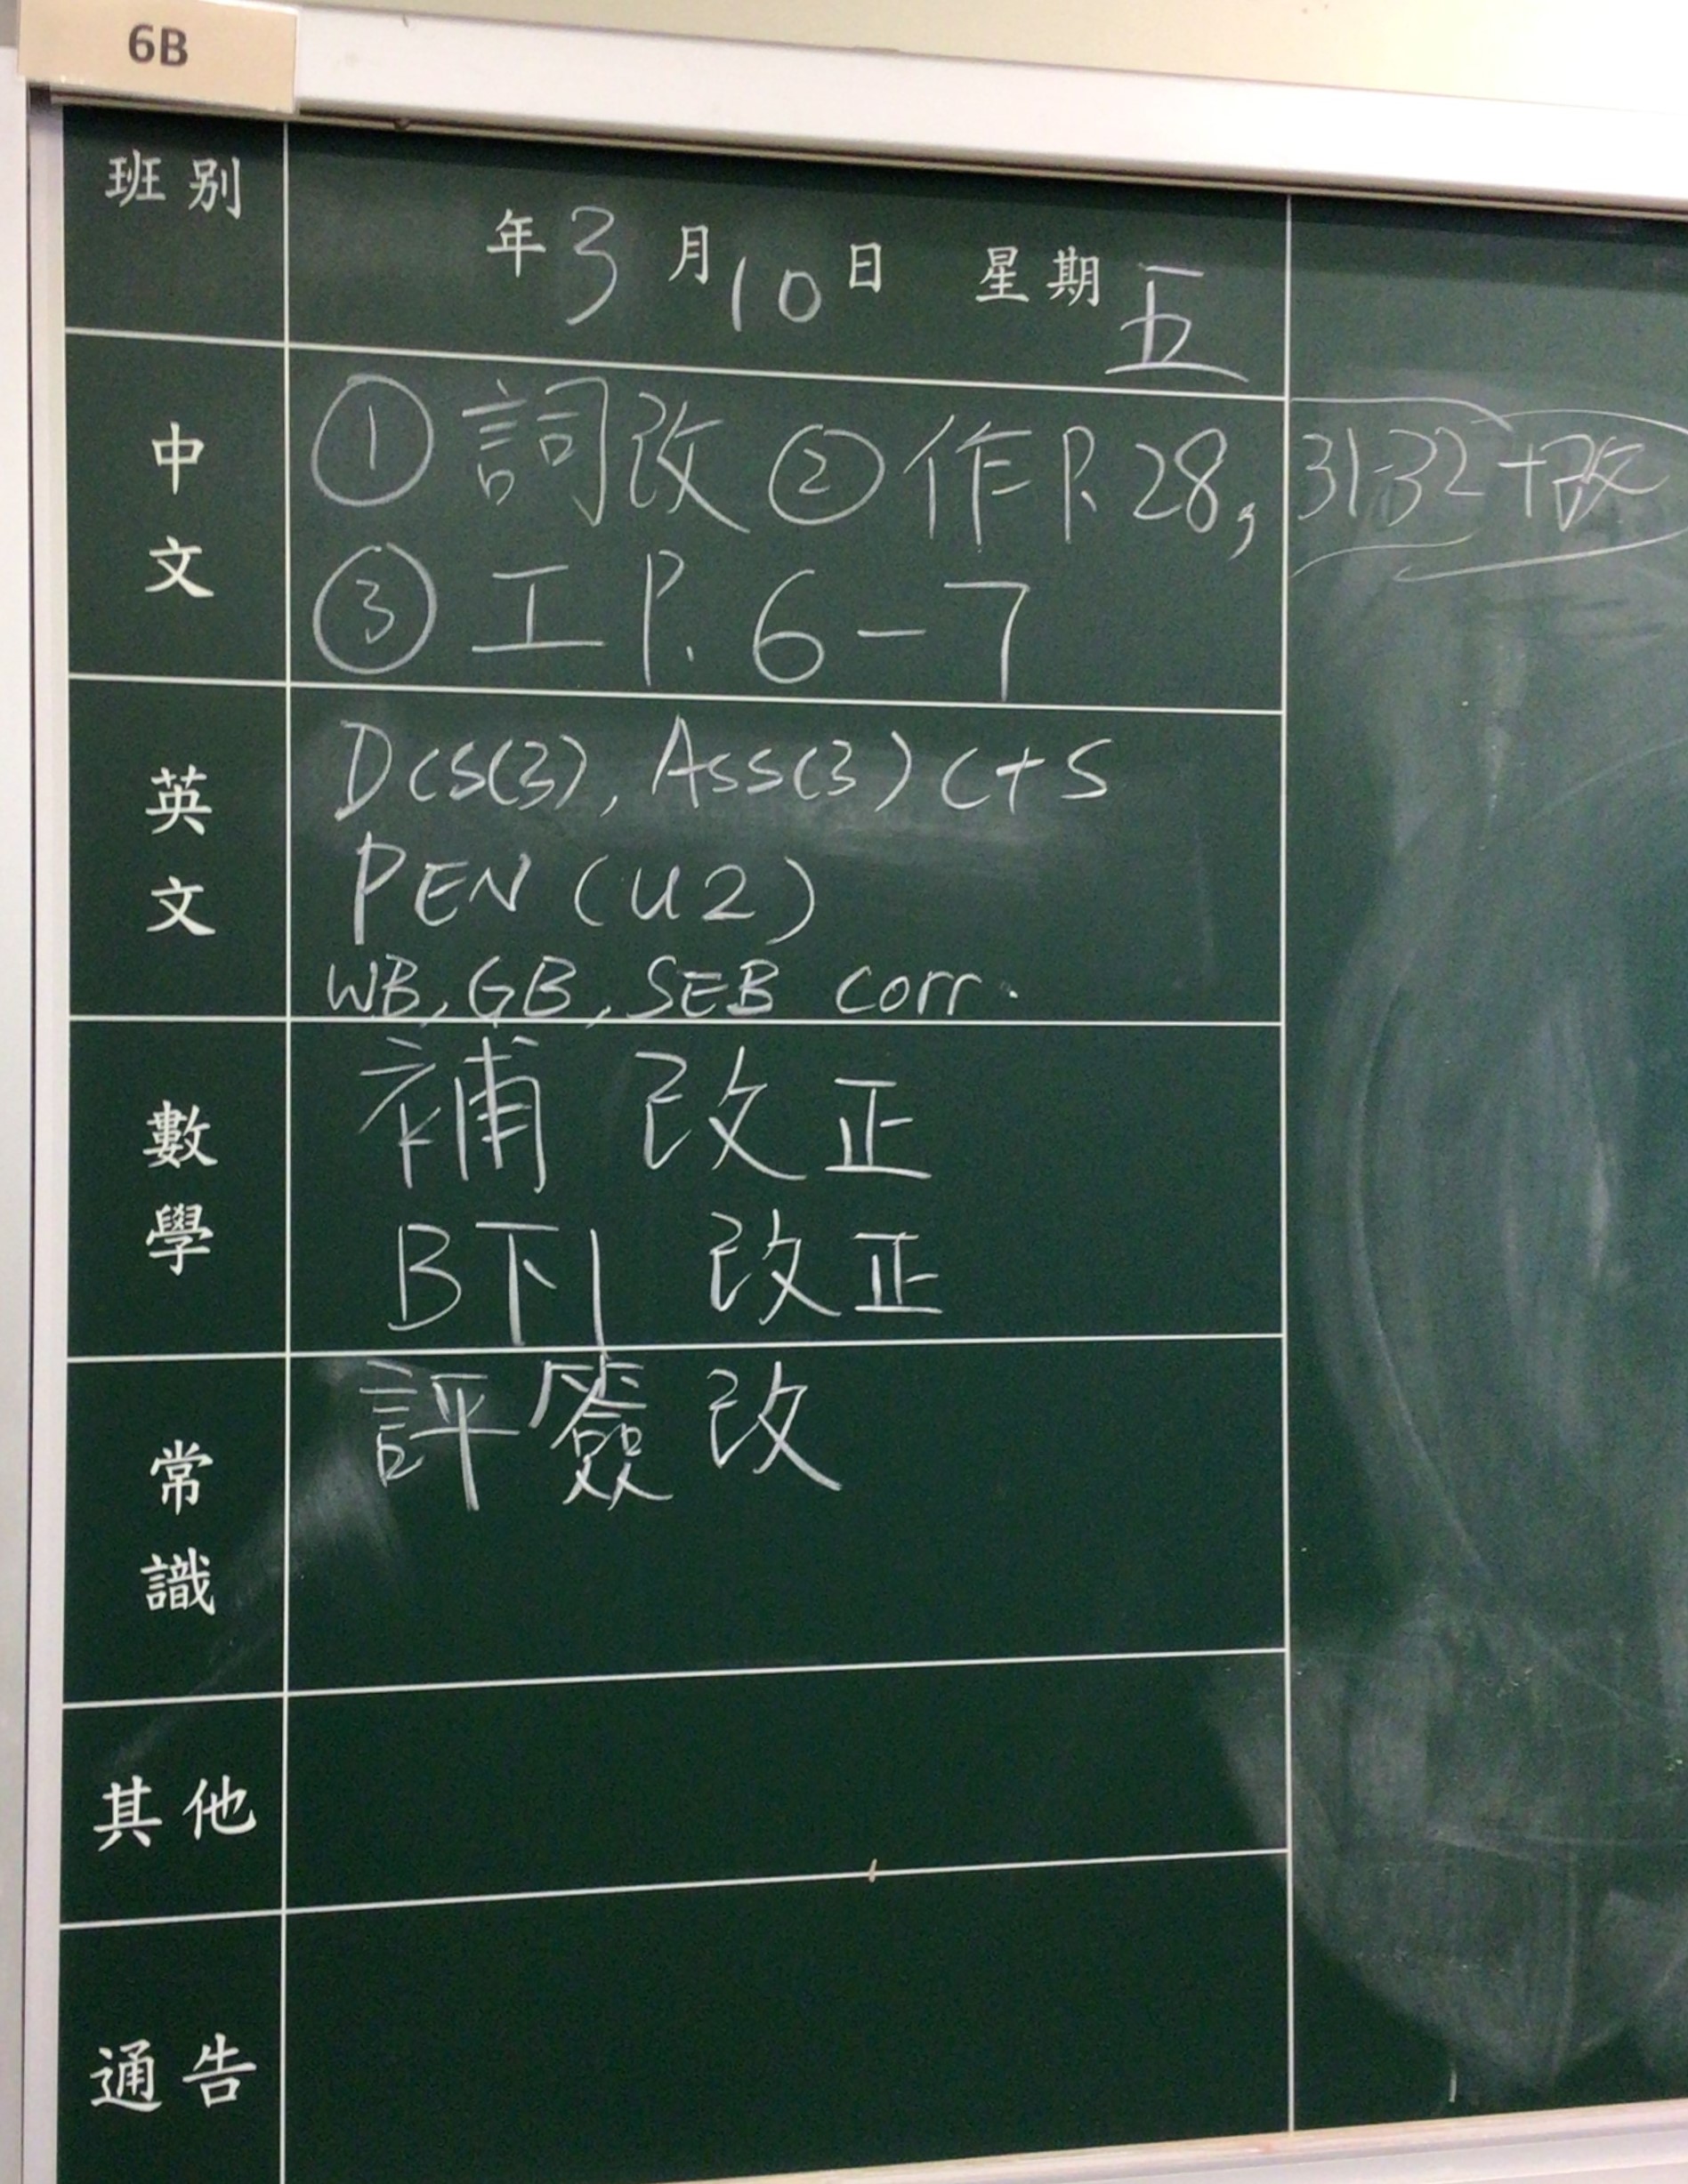 6B
班別
年 3 月 10 日 星期 五
中文
① 詞改 ② 作 P. 28, 31-32 + 改
③ 工 P. 6-7
英文
Dcs(3), Ass(3) C+S
PEN (U2)
WB, GB, SEB corr.
數學
補 改正
B下1 改正
常識
評簽改
其他
通告